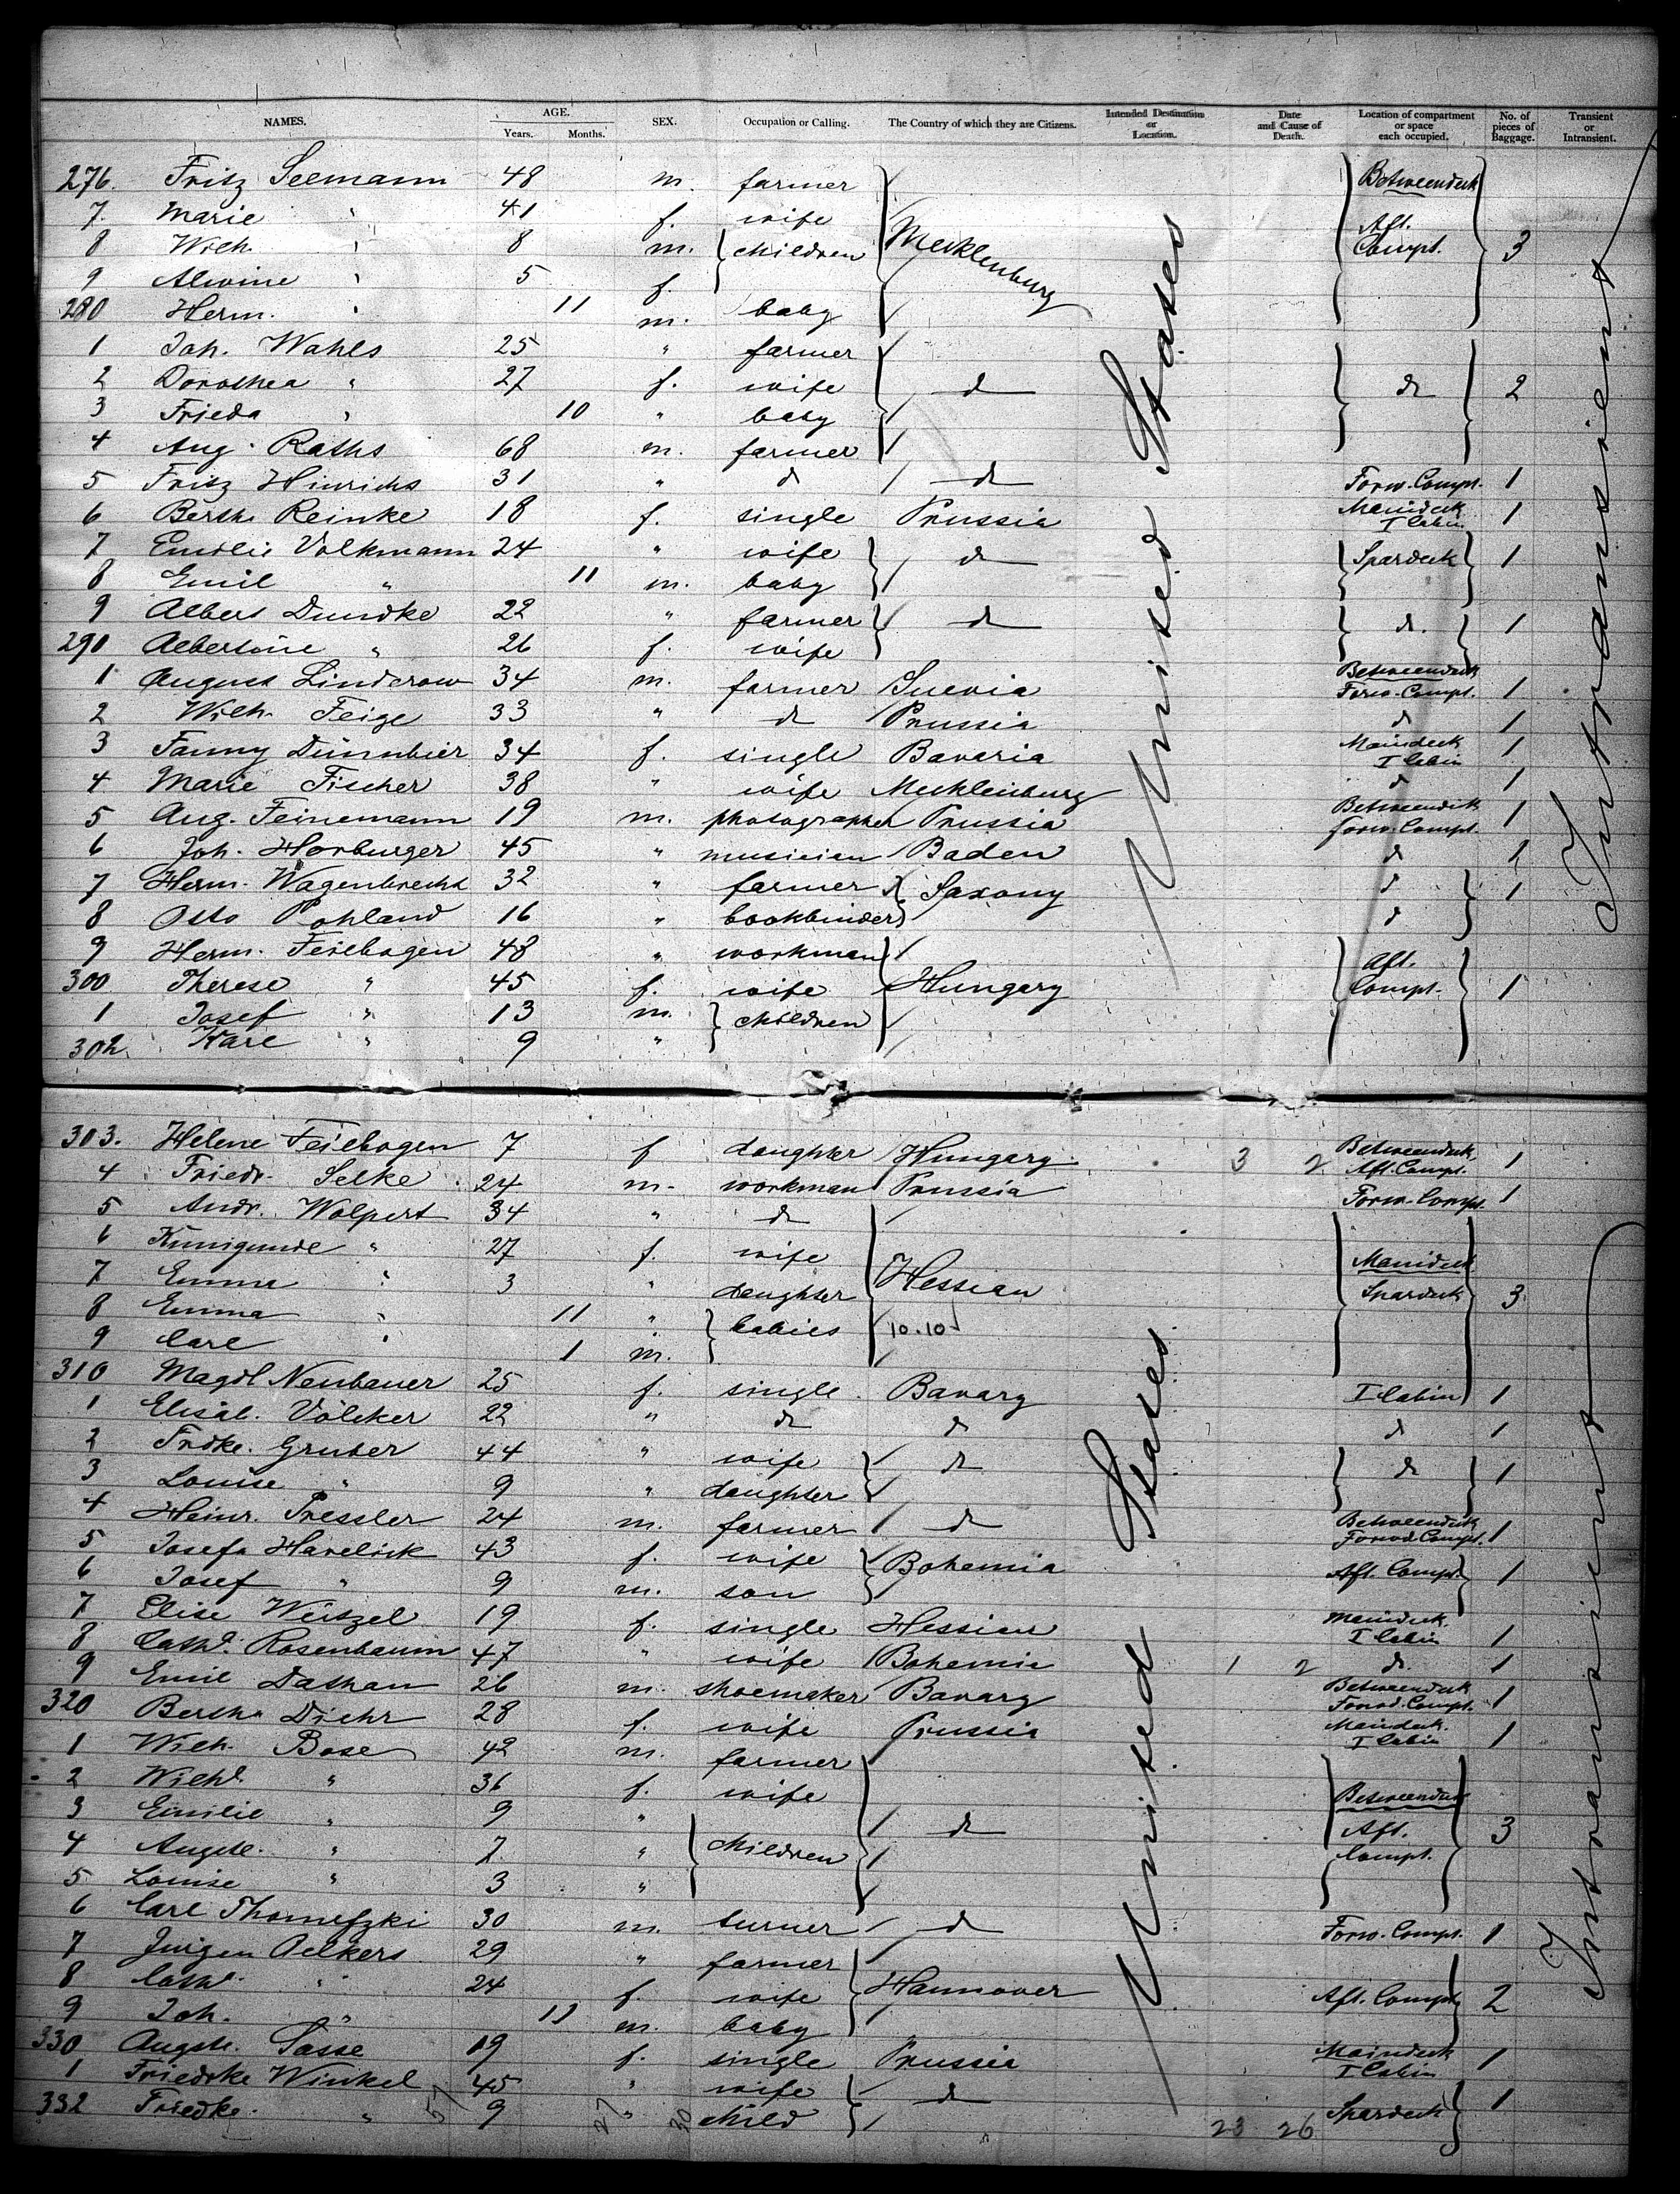 NAMES. AGE. Years. Months. SEX. Occupation or Calling. The Country of which they are Citizens. Intended Destination or Location. Date and Cause of Death. Location of compartment or space each occupied. No. of pieces of Baggage. Transient or Intransient.
276. Fritz Seemann 48 m. farmer Betweendeck
7. Marie " 41 f. wife Aft.
8 Wilh. " 8 m. children Mecklenburg Compt. 3
9 Alwine " 5 f.
280 Herm. " 11 m. baby
1 Joh. Wahls 25 " farmer
2 Dorothea " 27 f. wife do do 2
3 Frieda " 10 " baby
4 Aug. Raths 68 m. farmer
5 Fritz Hinrichs 31 " do do Forw. Compt. 1
6 Bertha Reinke 18 f. single Prussia Maindeck I Cabin 1
7 Emilie Volkmann 24 " wife do Spardeck 1
8 Emil " 11 m. baby
9 Albert Dundke 22 " farmer do do. 1
290 Albertine " 26 f. wife
1 August Linderow 34 m. farmer Suevia Betweendeck Forw. Compt. 1
2 Wilh. Feige 33 " do Prussia do 1
3 Fanny Dünnbier 34 f. single Bavaria Maindeck I Cabin 1
4 Marie Fischer 38 " wife Mecklenburg do 1
5 Aug. Feinemann 19 m. photographer Prussia Betweendeck forw. Compt. 1
6 Joh. Horburger 45 " musician Baden do 1
7 Herm. Wagenbrecht 32 " farmer Saxony do 1
8 Otto Pohland 16 " bookbinder do
9 Herm. Feilbogen 48 " workman Aft.
300 Therese " 45 f. wife Hungary Compt. 1
1 Josef " 13 m. children
302. Karl " 9 "
United States
Intransient
303. Helene Feilbogen 7 f daughter Hungary 3 2 Betweendeck Aft. Compt. 1
4 Friedr. Selke 24 m. workman Prussia Forw. Compt. 1
5 Andr. Wolpert 34 " do
6 Kunigunde " 27 f. wife Maindeck
7 Emma " 3 " daughter Hessian Spardeck 3
8 Emma " 11 " babies 10.10
9 Carl " 1 m.
310 Magdl Neubauer 25 f. single Bavary I Cabin 1
1 Elisab. Völcker 22 " do do do 1
2 Frdke. Gruber 44 " wife do do 1
3 Louise " 9 " daughter
4 Heinr. Pressler 24 m. farmer do Betweendeck Forwd. Compt. 1
5 Josefa Havelick 43 f. wife Bohemia Aft. Compt. 1
6 Josef " 9 m. son
7 Elise Weitzel 19 f. single Hessian Maindeck I Cabin 1
8 Cathe. Rosenbaum 47 " wife Bohemia 1 2 do. 1
9 Emil Dathan 26 m. shoemaker Bavary Betweendeck Forwd. Compt. 1
320 Bertha Diehr 28 f. wife Prussia Maindeck. I Cabin 1
1 Wilh. Bose 42 m. farmer
2 Wilhe. " 36 f. wife Betweendeck
3 Emilie " 9 " do Aft. 3
4 Augste. " 7 " children Compt.
5 Louise " 3 "
6 Carl Thomefzki 30 m. turner do Forw. Compt. 1
7 Jürgen Oelkers 29 " farmer
8 Cathe. " 24 f. wife Hannover Aft. Compt 2
9 Joh. " 11 m. baby
330 Augste. Sasse 19 f. single Prussia Maindeck I Cabin 1
1 Friedrke Winkel 45 " wife do 1
332 Friedke. " 9 " child Spardeck
57 27 30 23 26
United States
Intransient